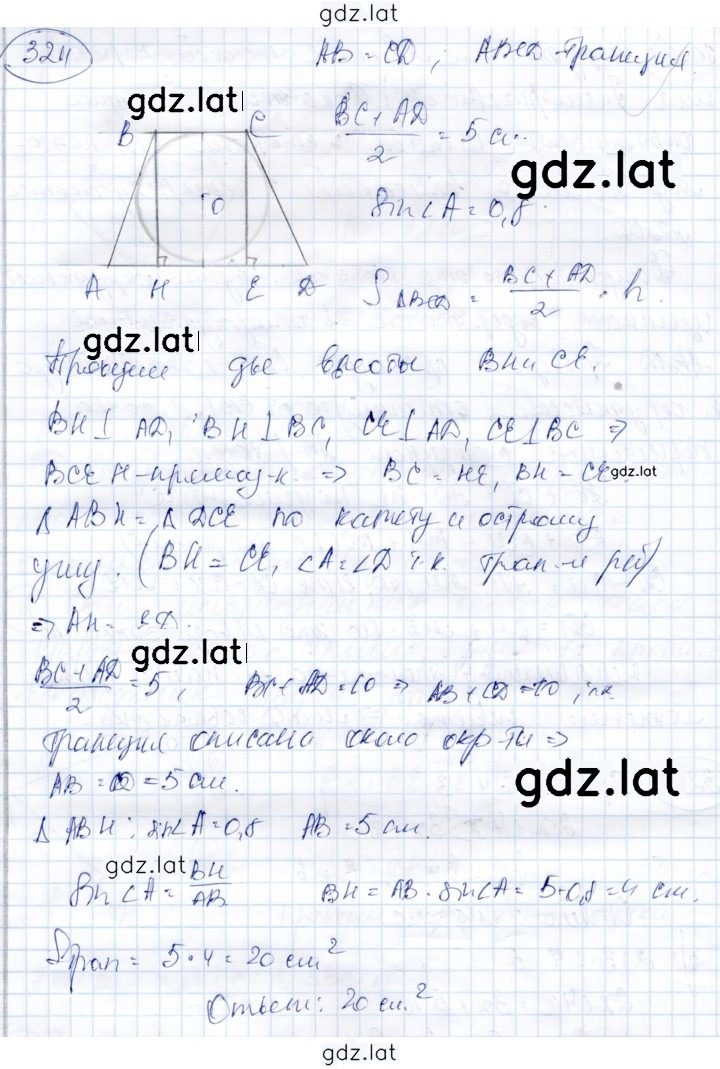 gdz.lat
324
AB = CD; ABCD-трапеция
gdz.lat
B C
(BC + AD)/2 = 5 см.
gdz.lat
O
sin∠A = 0,8.
A H E D
S ABCD = (BC + AD)/2 · h.
gdz.lat
Проведем две высоты BH и CE.
BH⊥AD, BH⊥BC, CE⊥AD, CE⊥BC ⇒
BCEH-прямоуг-к. ⇒ BC = HE, BH = CE.
gdz.lat
Δ ABH = Δ DCE по катету и острому
углу. (BH = CE, ∠A = ∠D т.к. трап-я р/б)
⇒ AH = ED.
gdz.lat
(BC + AD)/2 = 5, BC + AD = 10 ⇒ AB + CD = 10, т.к.
трапеция описана около окр-ти ⇒
AB = CD = 5 см.
gdz.lat
Δ ABH: sin∠A = 0,8 AB = 5 см.
gdz.lat
sin∠A = BH/AB BH = AB · sin∠A = 5·0,8 = 4 см.
Sтрап = 5·4 = 20 см²
Ответ: 20 см²
gdz.lat